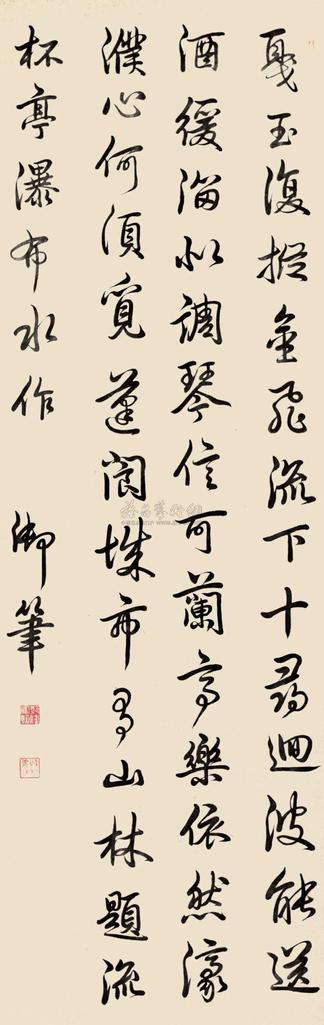 戛玉復摐金飛流下十尋迴波能送
酒緩溜似調琴信可蘭亭樂依然濠
濮心何須覓蓬閬城市有山林題流
杯亭瀑布水作 御筆